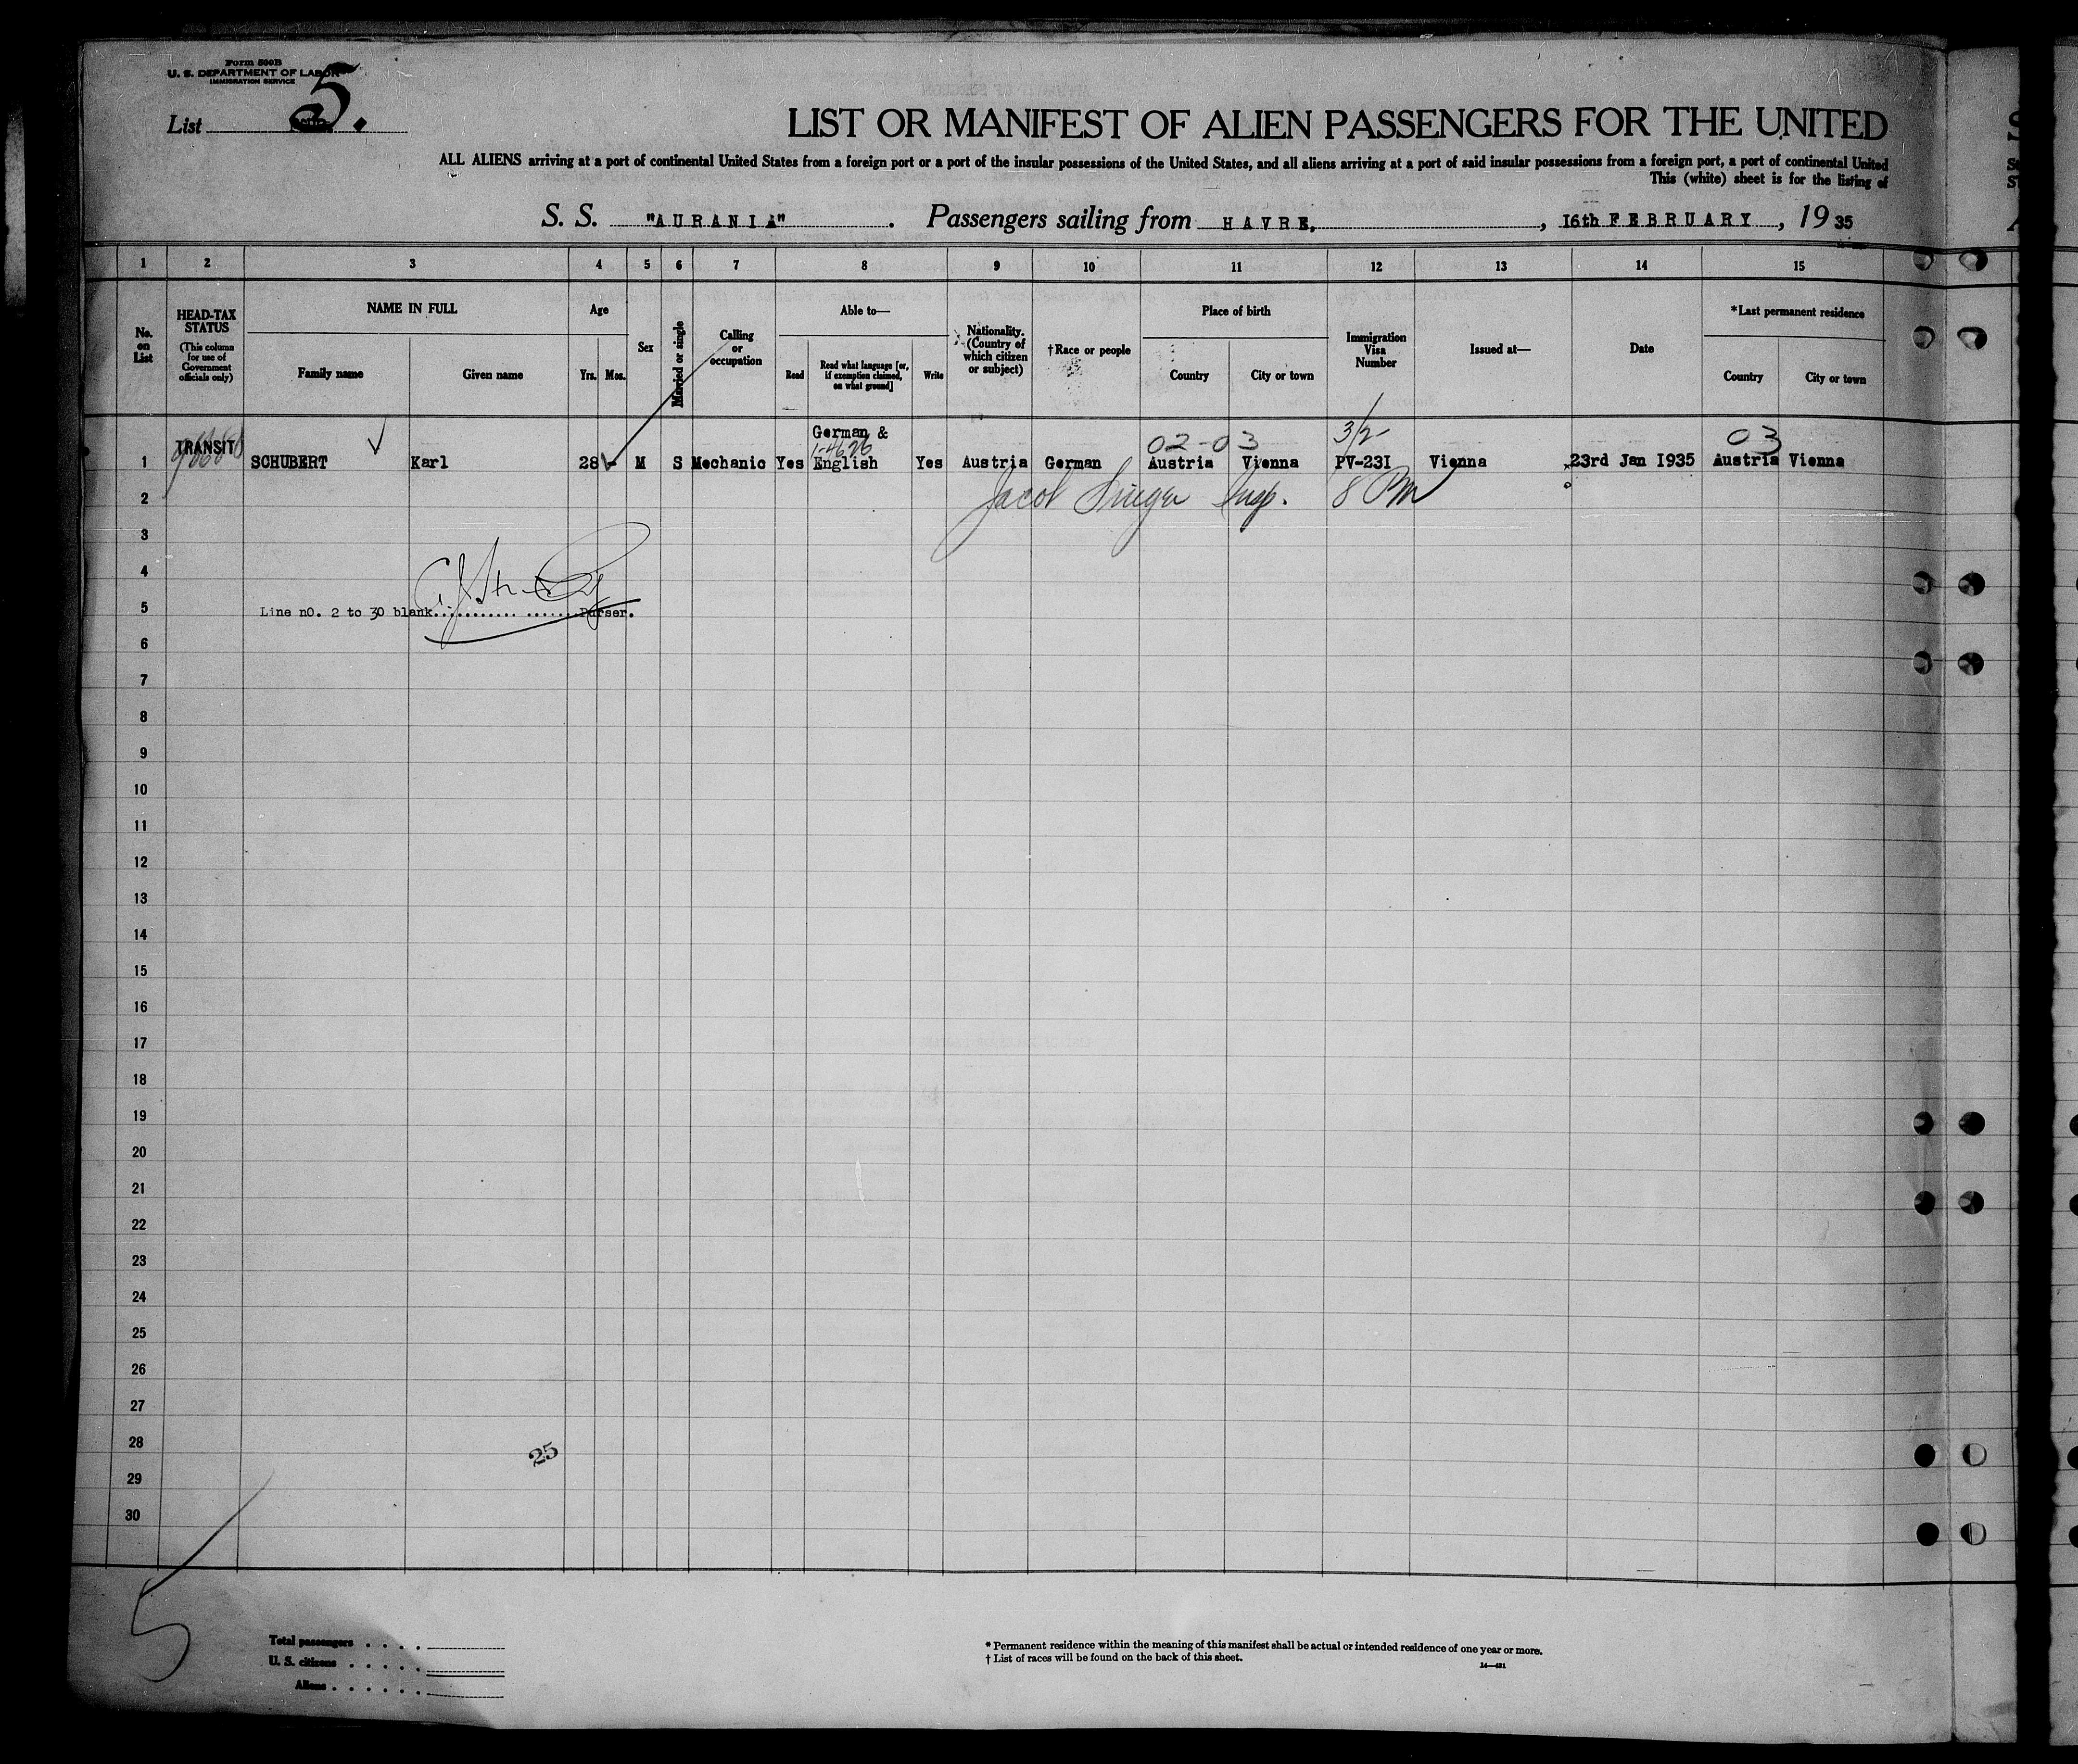 Form 500B
U. S. DEPARTMENT OF LABOR
IMMIGRATION SERVICE
List 5.
LIST OR MANIFEST OF ALIEN PASSENGERS FOR THE UNITED
ALL ALIENS arriving at a port of continental United States from a foreign port or a port of the insular possessions of the United States, and all aliens arriving at a port of said insular possessions from a foreign port, a port of continental United
This (white) sheet is for the listing of
S. S. "AURANIA". Passengers sailing from HAVRE, , 16th FEBRUARY, 19 35
1 2 3 4 5 6 7 8 9 10 11 12 13 14 15
No. on List
HEAD-TAX STATUS (This column for use of Government officials only)
NAME IN FULL
Family name Given name
Age
Yrs. Mos.
Sex
Married or single
Calling or occupation
Able to—
Read Read what language [or, if exemption claimed, on what ground] Write
Nationality. (Country of which citizen or subject)
†Race or people
Place of birth
Country City or town
Immigration Visa Number
Issued at—
Date
*Last permanent residence
Country City or town
TRANSIT German & 02-03 3/2- 03
1 SCHUBERT Karl 28 - M S Mechanic Yes English Yes Austria German Austria Vienna PV-23I Vienna 23rd Jan I935 Austria Vienna
2 Jacob Insp. 8 PM
3
4
5 Line nO. 2 to 30 blank.................... Purser.
6
7
8
9
10
11
12
13
14
15
16
17
18
19
20
21
22
23
24
25
26
27
28 25
29
30
5
Total passengers
U. S. citizens
Aliens
* Permanent residence within the meaning of this manifest shall be actual or intended residence of one year or more.
† List of races will be found on the back of this sheet.